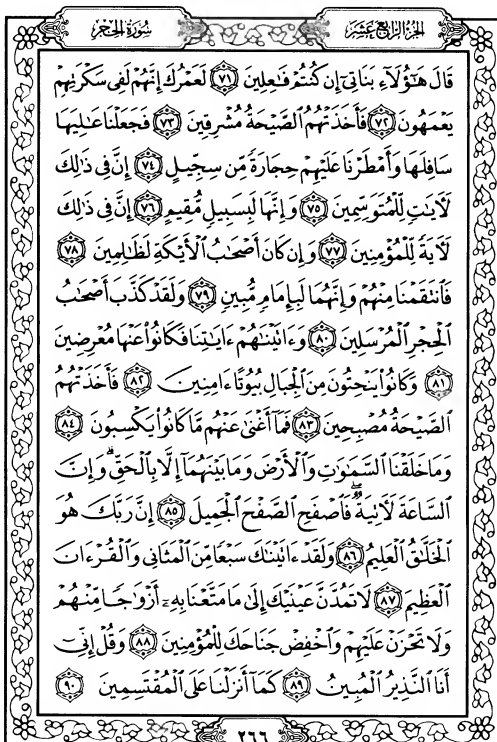 الجزء الرابع عشر
سورة الحجر
قَالَ هَٰٓؤُلَآءِ بَنَاتِىٓ إِن كُنتُمْ فَٰعِلِينَ ۝٧١ لَعَمْرُكَ إِنَّهُمْ لَفِى سَكْرَتِهِمْ
يَعْمَهُونَ ۝٧٢ فَأَخَذَتْهُمُ ٱلصَّيْحَةُ مُشْرِقِينَ ۝٧٣ فَجَعَلْنَا عَٰلِيَهَا
سَافِلَهَا وَأَمْطَرْنَا عَلَيْهِمْ حِجَارَةً مِّن سِجِّيلٍ ۝٧٤ إِنَّ فِى ذَٰلِكَ
لَءَايَٰتٍ لِّلْمُتَوَسِّمِينَ ۝٧٥ وَإِنَّهَا لَبِسَبِيلٍ مُّقِيمٍ ۝٧٦ إِنَّ فِى ذَٰلِكَ
لَءَايَةً لِّلْمُؤْمِنِينَ ۝٧٧ وَإِن كَانَ أَصْحَٰبُ ٱلْأَيْكَةِ لَظَٰلِمِينَ ۝٧٨
فَٱنتَقَمْنَا مِنْهُمْ وَإِنَّهُمَا لَبِإِمَامٍ مُّبِينٍ ۝٧٩ وَلَقَدْ كَذَّبَ أَصْحَٰبُ
ٱلْحِجْرِ ٱلْمُرْسَلِينَ ۝٨٠ وَءَاتَيْنَٰهُمْ ءَايَٰتِنَا فَكَانُوا۟ عَنْهَا مُعْرِضِينَ
۝٨١ وَكَانُوا۟ يَنْحِتُونَ مِنَ ٱلْجِبَالِ بُيُوتًا ءَامِنِينَ ۝٨٢ فَأَخَذَتْهُمُ
ٱلصَّيْحَةُ مُصْبِحِينَ ۝٨٣ فَمَآ أَغْنَىٰ عَنْهُم مَّا كَانُوا۟ يَكْسِبُونَ ۝٨٤
وَمَا خَلَقْنَا ٱلسَّمَٰوَٰتِ وَٱلْأَرْضَ وَمَا بَيْنَهُمَآ إِلَّا بِٱلْحَقِّ ۗ وَإِنَّ
ٱلسَّاعَةَ لَءَاتِيَةٌ ۖ فَٱصْفَحِ ٱلصَّفْحَ ٱلْجَمِيلَ ۝٨٥ إِنَّ رَبَّكَ هُوَ
ٱلْخَلَّٰقُ ٱلْعَلِيمُ ۝٨٦ وَلَقَدْ ءَاتَيْنَٰكَ سَبْعًا مِّنَ ٱلْمَثَانِى وَٱلْقُرْءَانَ
ٱلْعَظِيمَ ۝٨٧ لَا تَمُدَّنَّ عَيْنَيْكَ إِلَىٰ مَا مَتَّعْنَا بِهِۦٓ أَزْوَٰجًا مِّنْهُمْ
وَلَا تَحْزَنْ عَلَيْهِمْ وَٱخْفِضْ جَنَاحَكَ لِلْمُؤْمِنِينَ ۝٨٨ وَقُلْ إِنِّىٓ
أَنَا ٱلنَّذِيرُ ٱلْمُبِينُ ۝٨٩ كَمَآ أَنزَلْنَا عَلَى ٱلْمُقْتَسِمِينَ ۝٩٠
٢٦٦